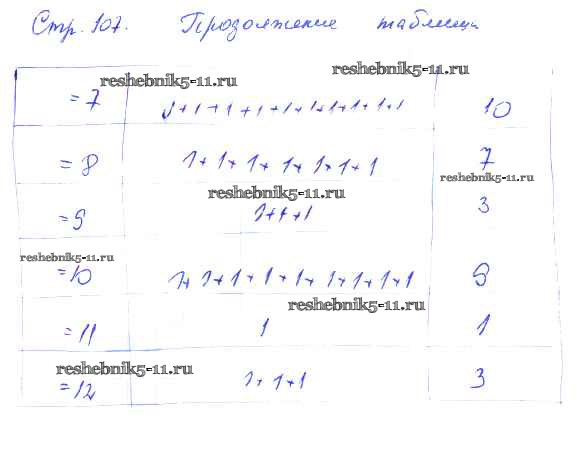 Стр. 107. Продолжение таблицы
reshebnik5-11.ru
reshebnik5-11.ru
= 7 1+1+1+1+1+1+1+1+1+1 10
= 8 1+1+1+1+1+1+1 7
reshebnik5-11.ru
reshebnik5-11.ru
= 9 1+1+1 3
reshebnik5-11.ru
= 10 1+1+1+1+1+1+1+1+1 9
reshebnik5-11.ru
= 11 1 1
reshebnik5-11.ru
= 12 1+1+1 3